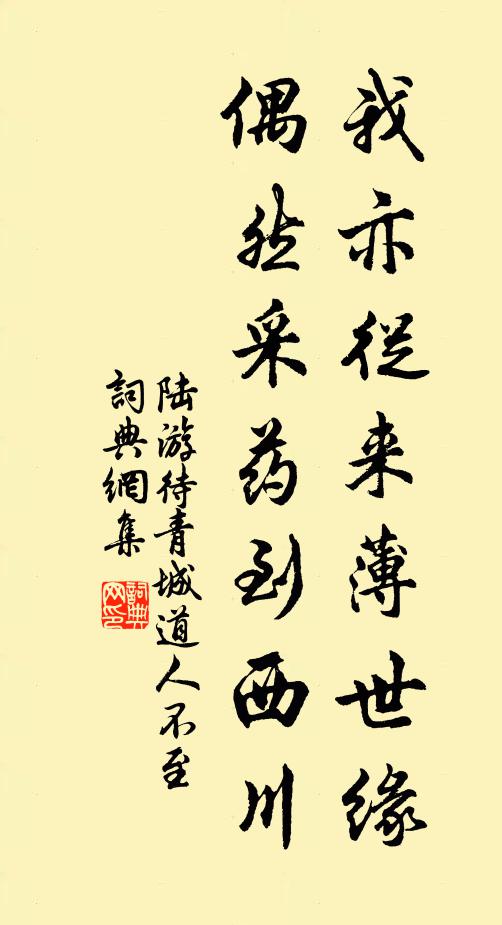 我亦從来薄世緣
偶然采药到西川
陆游待青城道人不至
詞典網集
詞典网印